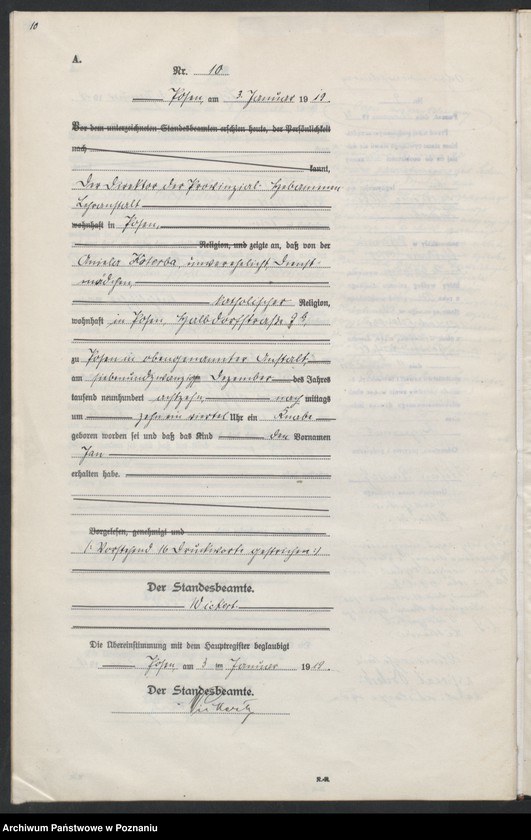 10
A.
Nr. 10
Posen, am 3. Januar 1919.
Vor dem unterzeichneten Standesbeamten erschien heute, der Persönlichkeit
nach
kannt,
Der Direktor der Provinzial-Hebammen
Lehranstalt
wohnhaft in Posen,
Religion, und zeigte an, daß von der
Aniela Kotorba, unverehelicht, Dienst-
mädchen,
katholischer Religion,
wohnhaft in Posen, Halbdorfstraße
zu Posen in obengenannter Anstalt,
am siebenundzwanzig Dezember des Jahres
tausend neunhundert achtzehn, nach mittags
um zehn ein viertel Uhr ein Knabe
geboren worden sei und daß das Kind den Vornamen
Jan
erhalten habe.
Vorgelesen, genehmigt und
(: Vorstehend 16 Druckworte gestrichen :)
Der Standesbeamte.
Wickert.
Die Übereinstimmung mit dem Hauptregister beglaubigt
Posen, am 3 ten Januar 1919.
Der Standesbeamte.
Archiwum Państwowe w Poznaniu